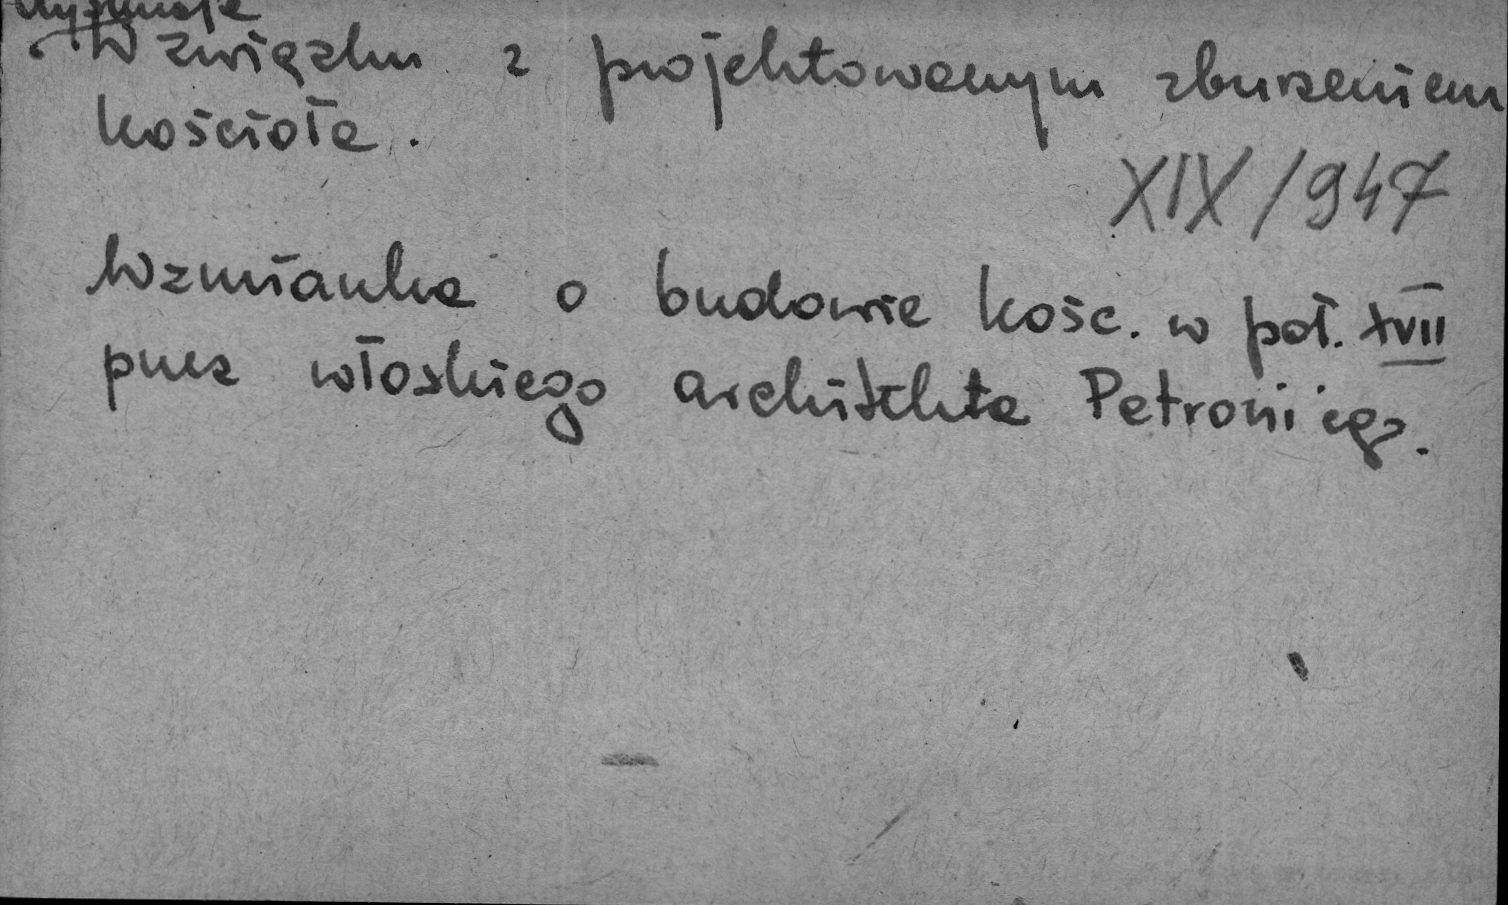 W związku z projektowanym zburzeniem
kościoła.
XIX/947
Wzmianka o budowie kośc. w poł. XVII
przez włoskiego architekta Petroniego.